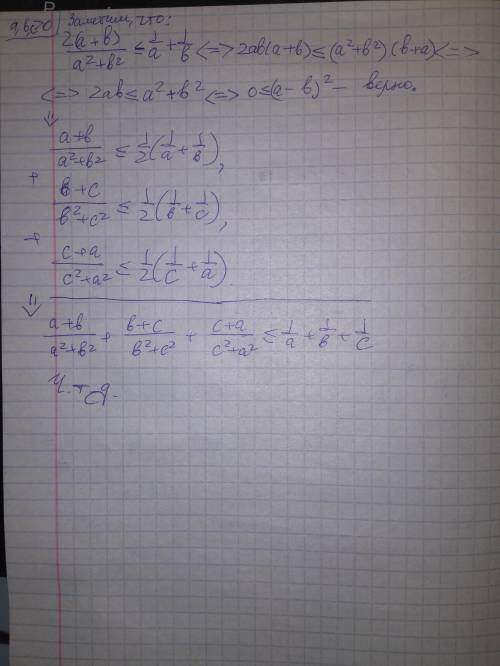 a,b,c>0 Заметим, что:
2(a+b)/(a²+b²) ≤ 1/a + 1/b <=> 2ab(a+b) ≤ (a²+b²)(b+a) <=>
<=> 2ab ≤ a²+b² <=> 0 ≤ (a-b)² - верно.
⇓
(a+b)/(a²+b²) ≤ 1/2(1/a + 1/b),
+
(b+c)/(b²+c²) ≤ 1/2(1/b + 1/c),
+
(c+a)/(c²+a²) ≤ 1/2(1/c + 1/a)
⇓
(a+b)/(a²+b²) + (b+c)/(b²+c²) + (c+a)/(c²+a²) ≤ 1/a + 1/b + 1/c
Ч.т.д.